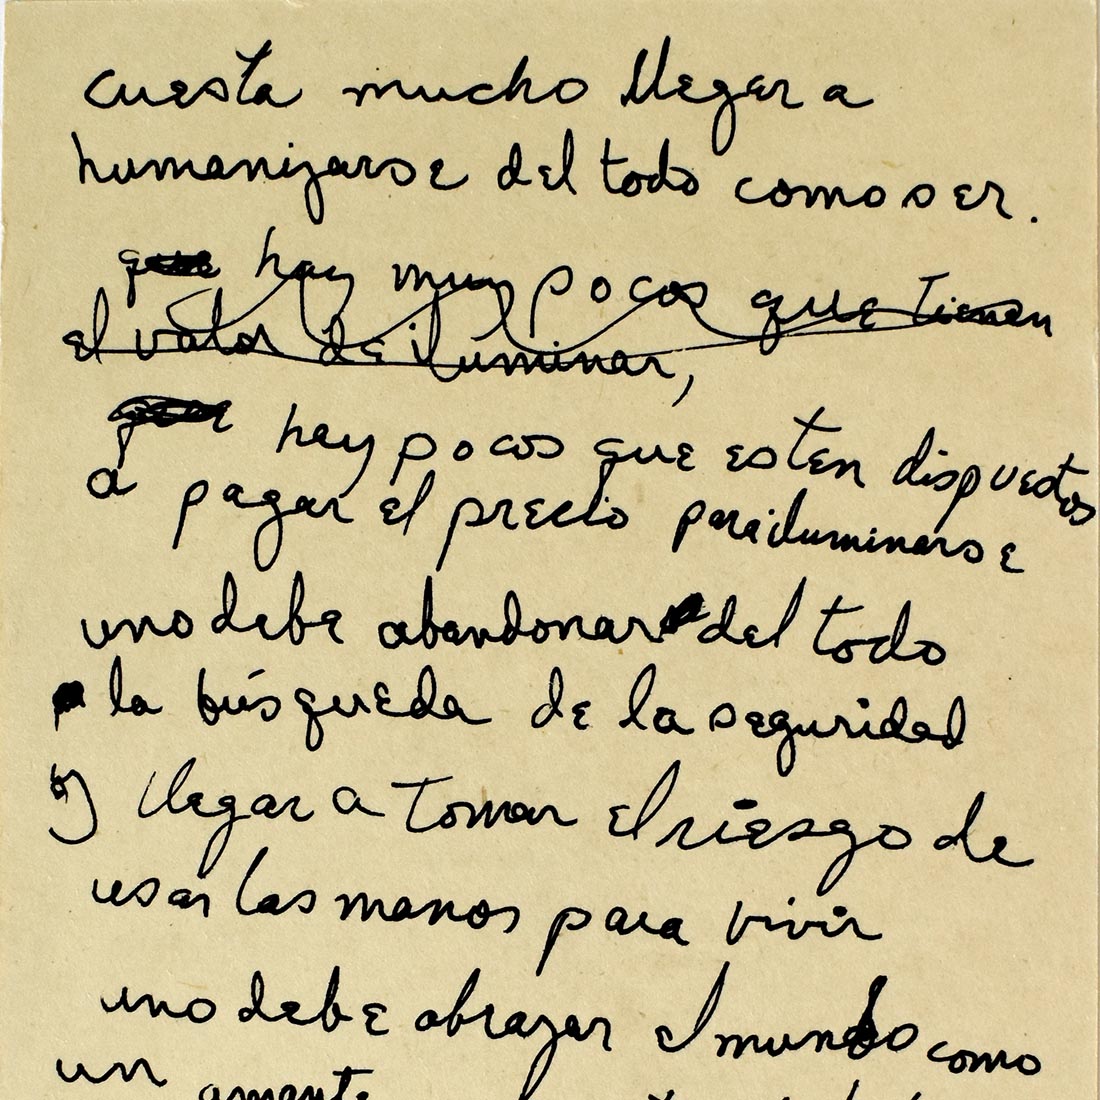 cuesta mucho llegar a
humanizarse del todo como ser.
que hay muy pocos que tienen
el valor de iluminar,
que hay pocos que esten dispuestos
a pagar el precio para iluminarse
uno debe abandonar del todo
la búsqueda de la seguridad
y llegar a tomar el riesgo de
usar las manos para vivir
uno debe abrazar el mundo como
un amante